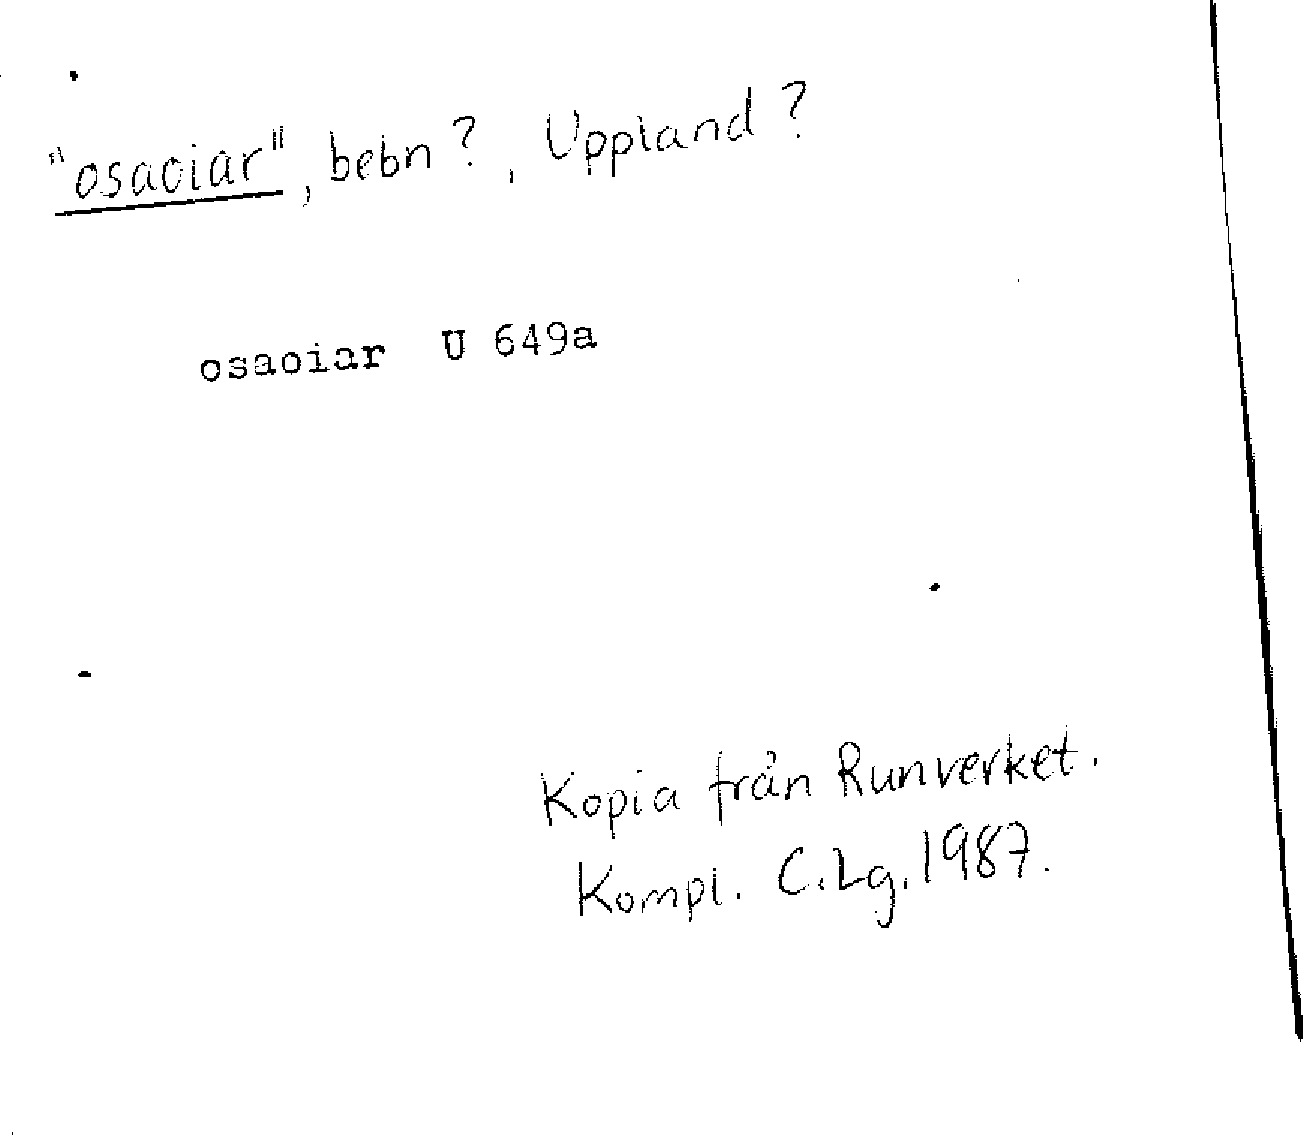 "osaoiar", bebn?, Uppland?
osaoiar U 649a
Kopia från Runverket.
Kompl. C.Lg. 1987.